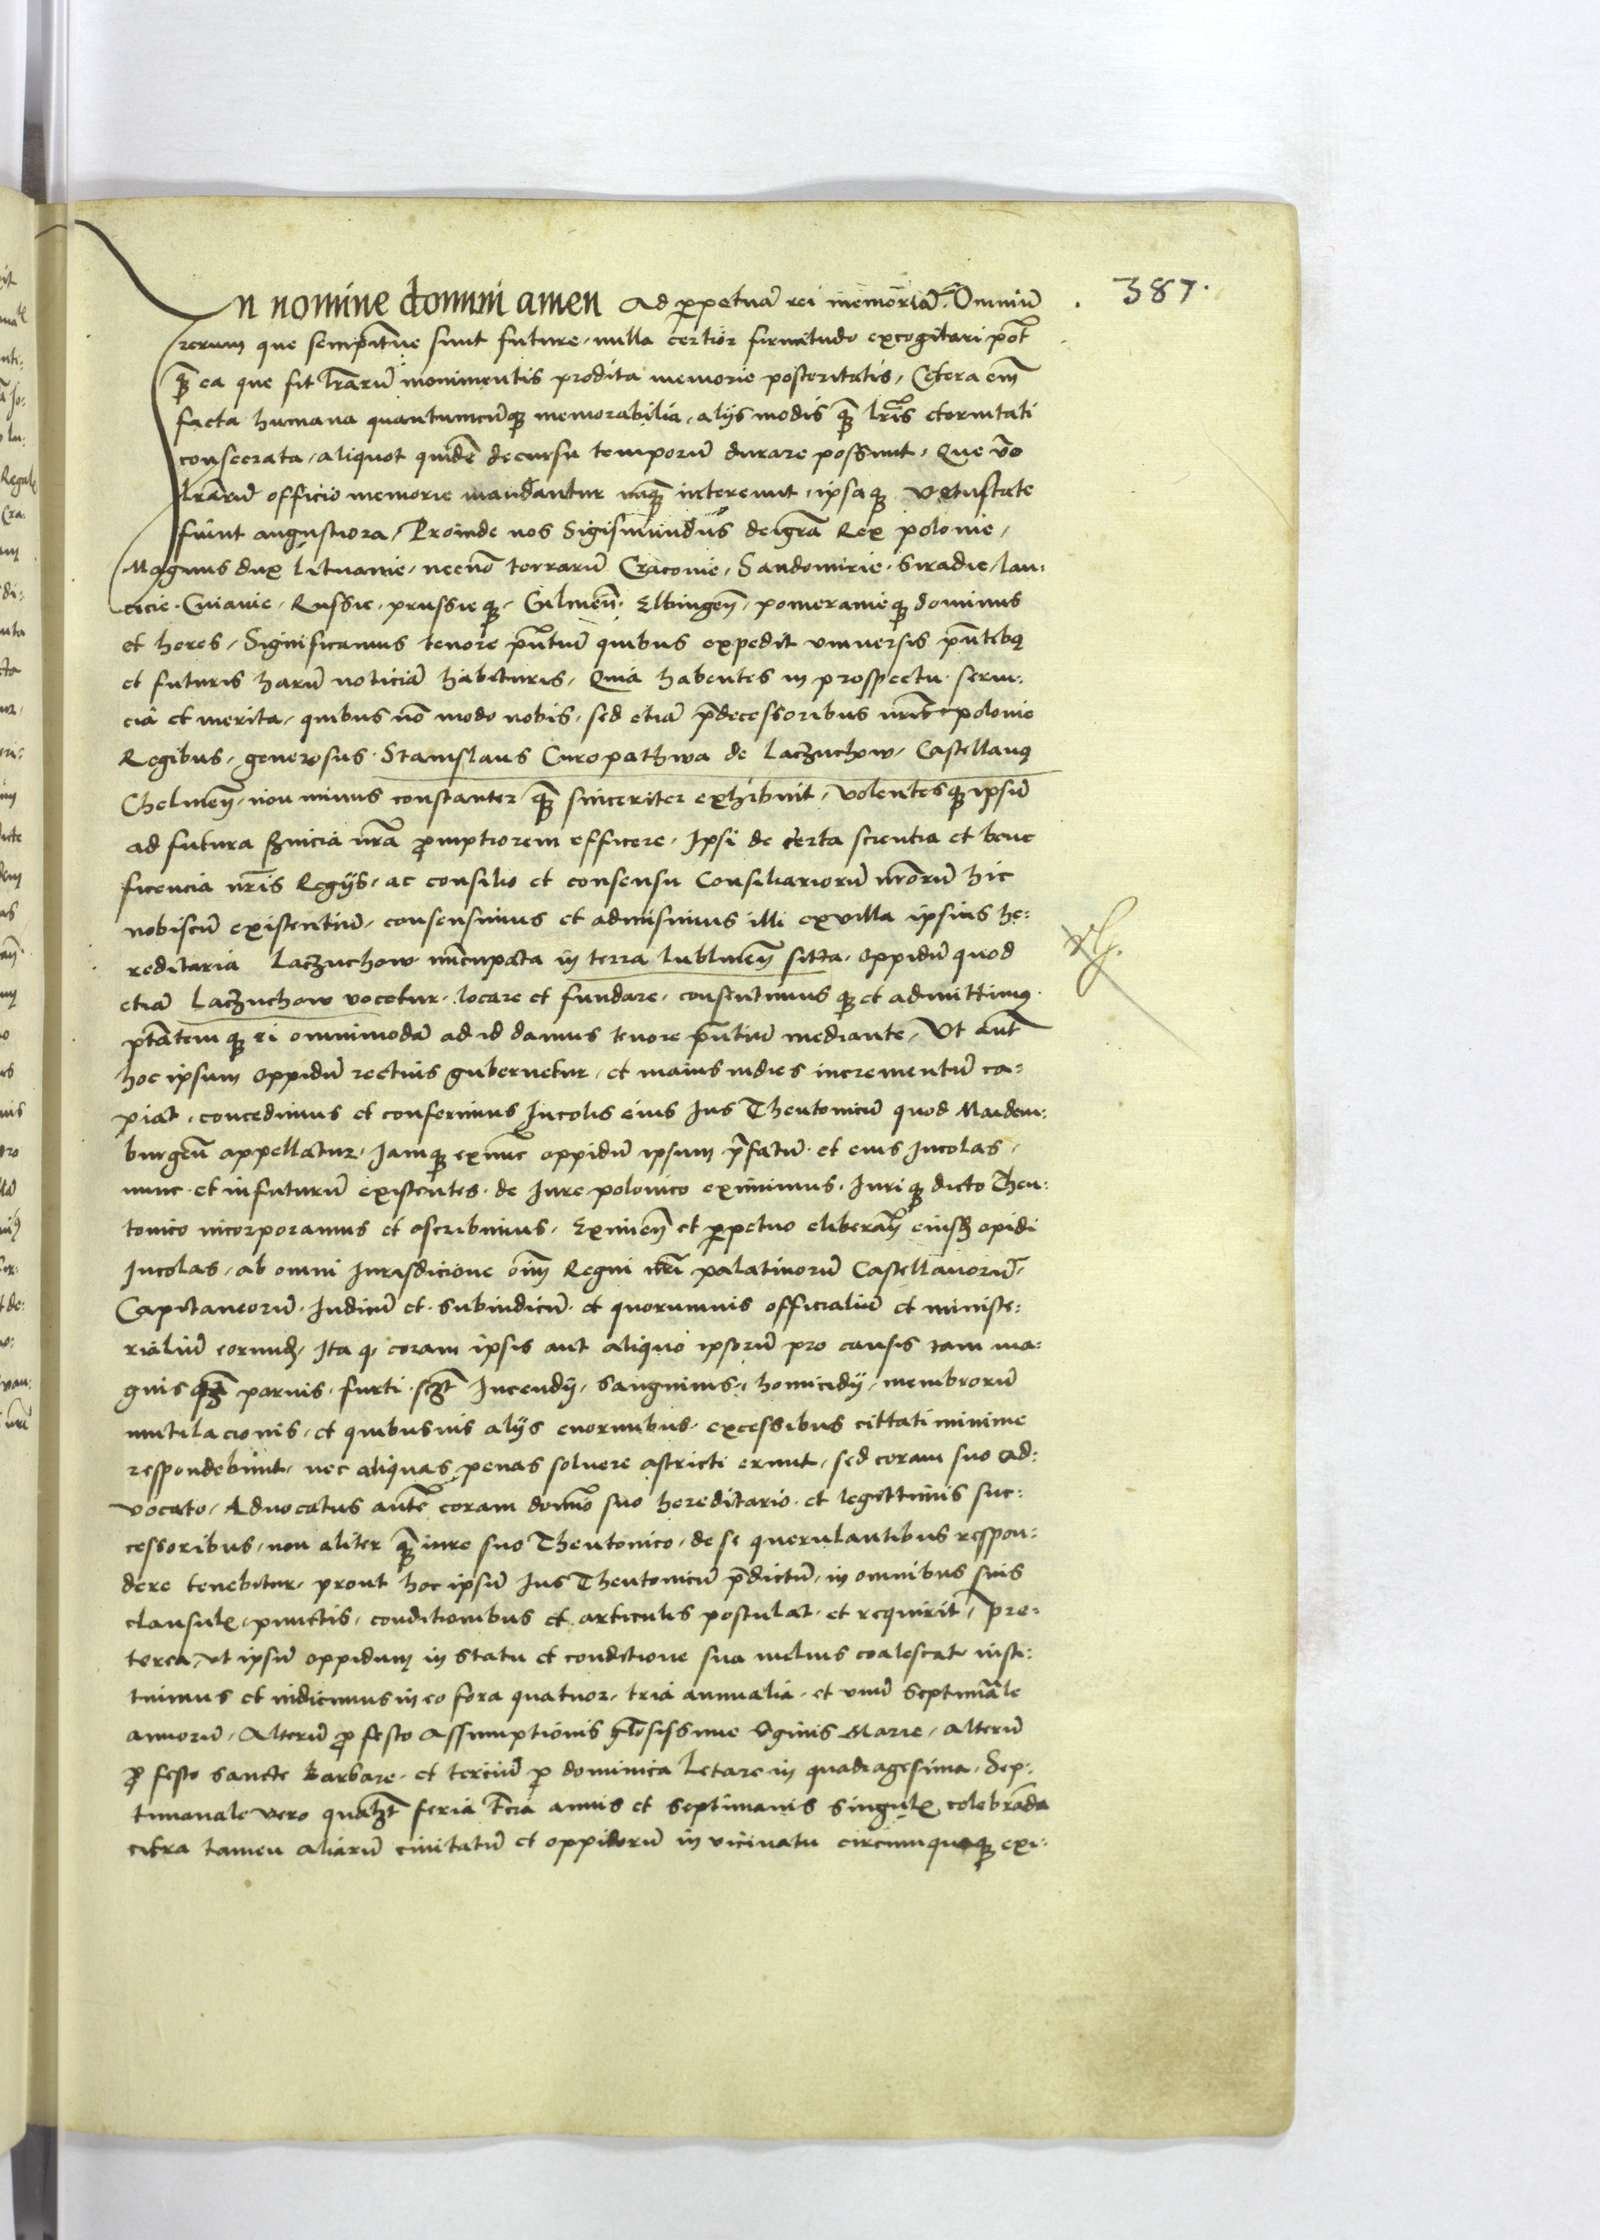 387.
In nomine domini amen Ad ꝑpetuā rei memoriā. Omniū
rerum que sempitn̄e sunt future, nulla certior firmitudo excogitari pōt
q̄ꝫ ea que fit lr̄arū monimentis prodita memorie posteritatis, Cetera em̄
facta humana quantumcūqꝫ memorabilia, alijs modis q̄ꝫ lrīs eternitati
consecrata, aliquot quidē decursu temporū durare possunt, Que v̄o
lr̄arū officio memorie mandantur nūqꝫ intereunt, ipsaqꝫ vetustate
fiunt angustiora, Proinde nos Sigismundus dei gr̄a Rex polonie,
Magnus dux lituanie, necnō terrarū Cracovie, Sandomirie, Siradie, lan:
cicie, Cuiauie, Russie, prussieqꝫ, Culmeñ. Elbingeñ, pomeranieqꝫ dominus
et heres, Significamus tenore pn̄tium quibus expedit vniversis pn̄tibꝫ
et futuris harū noticiā habituris, Quia habentes in prospectu serui:
cia et merita, quibus nō modo nobis, sed etiā p̄decessoribus nr̄is polonie
Regibus, generosus Stanislaus Curopathwa de Laczuchow, Castellanꝯ
Chelmeñ, non minus constanter q̄ꝫ sinceriter exhibuit, volentesqꝫ ipsū
ad futura ẜuicia nr̄a ꝓmptiorem efficere, Ipsi de certa scientia et bene
ficencia nr̄is Regijs, ac consilio et consensu Consiliariorū nr̄orū hic
nobiscū existentiū, consensimus et admisimus illi ex villa ipsius he:
reditaria Laczuchow nūcupata in terra lublineñ sitta, oppidū quod
etiā Laczuchow vocetur, locare et fundare, consentimusqꝫ et admittimꝯ
ptātemqꝫ ei omnimodā ad id damus tenore pn̄tium mediante, Ut aut̄
hoc ipsum oppidū rectius gubernetur, et maius indies incrementū ca:
piat, concedimus et conferimus Incolis eius Ius Theutonicū quod Maidem:
burgeñ appellatur, Iamqꝫ ex nūc oppidū ipsum p̄fatū et eius Incolas,
nunc et in futurū existentes, de Iure polonico eximimus, Iuriqꝫ dicto Theu:
tonico incorporamus et ascribimus, Eximeñ et ꝑpetuo eliberañ eiusdꝫ opidi
Incolas, ab omni Iurisdicione oīm Regni nr̄i palatinorū Castellanorū,
Capitaneorū, Iudicū et Subiudicū, et quorumuis officialiū et ministe:
rialiū eorundꝫ, Ita ꝙ coram ipsis aut aliquo ipsorū pro causis tam ma:
gnis q̄ꝫ paruis, furti, Incendij, sanguinis, homicidij, membrorū
mutilacionis, et quibusuis alijs enormibus excessibus cittati minime
respondebunt, nec aliquas penas soluere astricti erunt, sed coram suo Ad:
vocato, Advocatus autē coram domīo suo hereditario et legittimis suc:
cessoribus, non aliter q̄ꝫ iure suo Theutonico, de se querulantibus respon:
dere tenebitur, prout hoc ipsū Ius Theutonicū p̄dictū, in omnibus suis
clausulꝭ, punctis, conditionibus et articulis postulat et requirit, Pre:
terea, ut ipsū oppidum in statu et conditione sua melius coalescat insti:
tuimus et indicimus in eo fora quatuor, tria annualia, et vnū Septimāle
annorū, Alterū ꝓ festo Assumptionis glōsissime v̄ginis Marie, alterū
ꝓ festo sancte Barbare, et terciū ꝓ dominica Letare in quadragesima, Sep:
timanale vero feria t̄cia annis et septimanis singulꝭ celebrāda
citra tamen aliarū ciuitatū et oppidorū in vicinatu circumquaqꝫ exi: